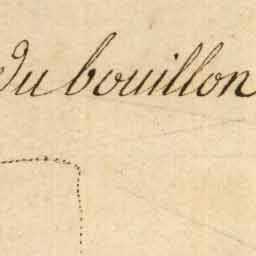 du bouillon